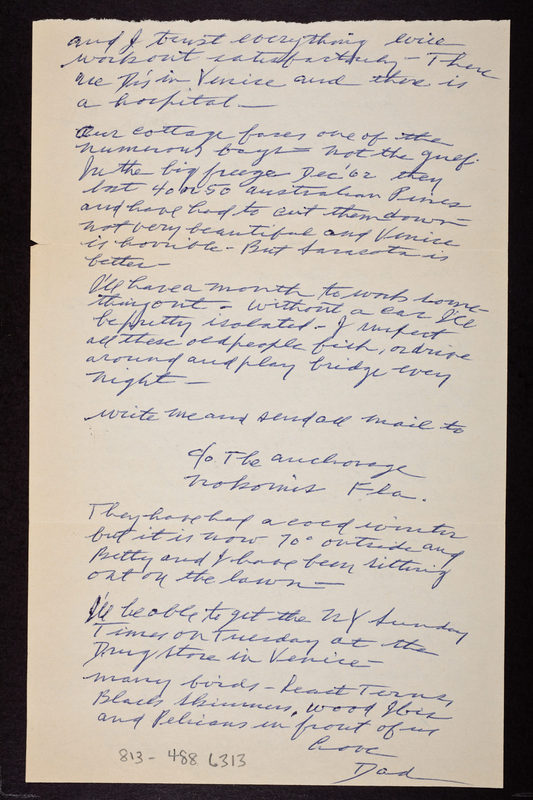 and I trust everything will
work out satisfactorily - There
are Drs in Venice and there is
a hospital -
Our cottage faces one of the
numerous bays - not the gulf.
In the big freeze Dec '62 they
lost 40 or 50 Australian Pines
and have had to cut them down -
not very beautiful and Venice
is horrible - But Sarasota is
better -
I'll have a month to work some-
thing out - Without a car I'll
be pretty isolated - I
all these old people fish, or drive
around and play bridge every
night -
Write me and send all mail to
c/o The Anchorage
Nokomis Fla.
They have had a cold winter
but it is now 70° outside and
Betty and I have been sitting
out on the lawn -
I'll be able to get the NY Sunday
Times on Tuesday at the
Drug Store in Venice -
Many birds - Least Terns,
Black Skimmers, Wood Ibis
and Pelicans in front of us
Love
Dad
813 - 488 6313